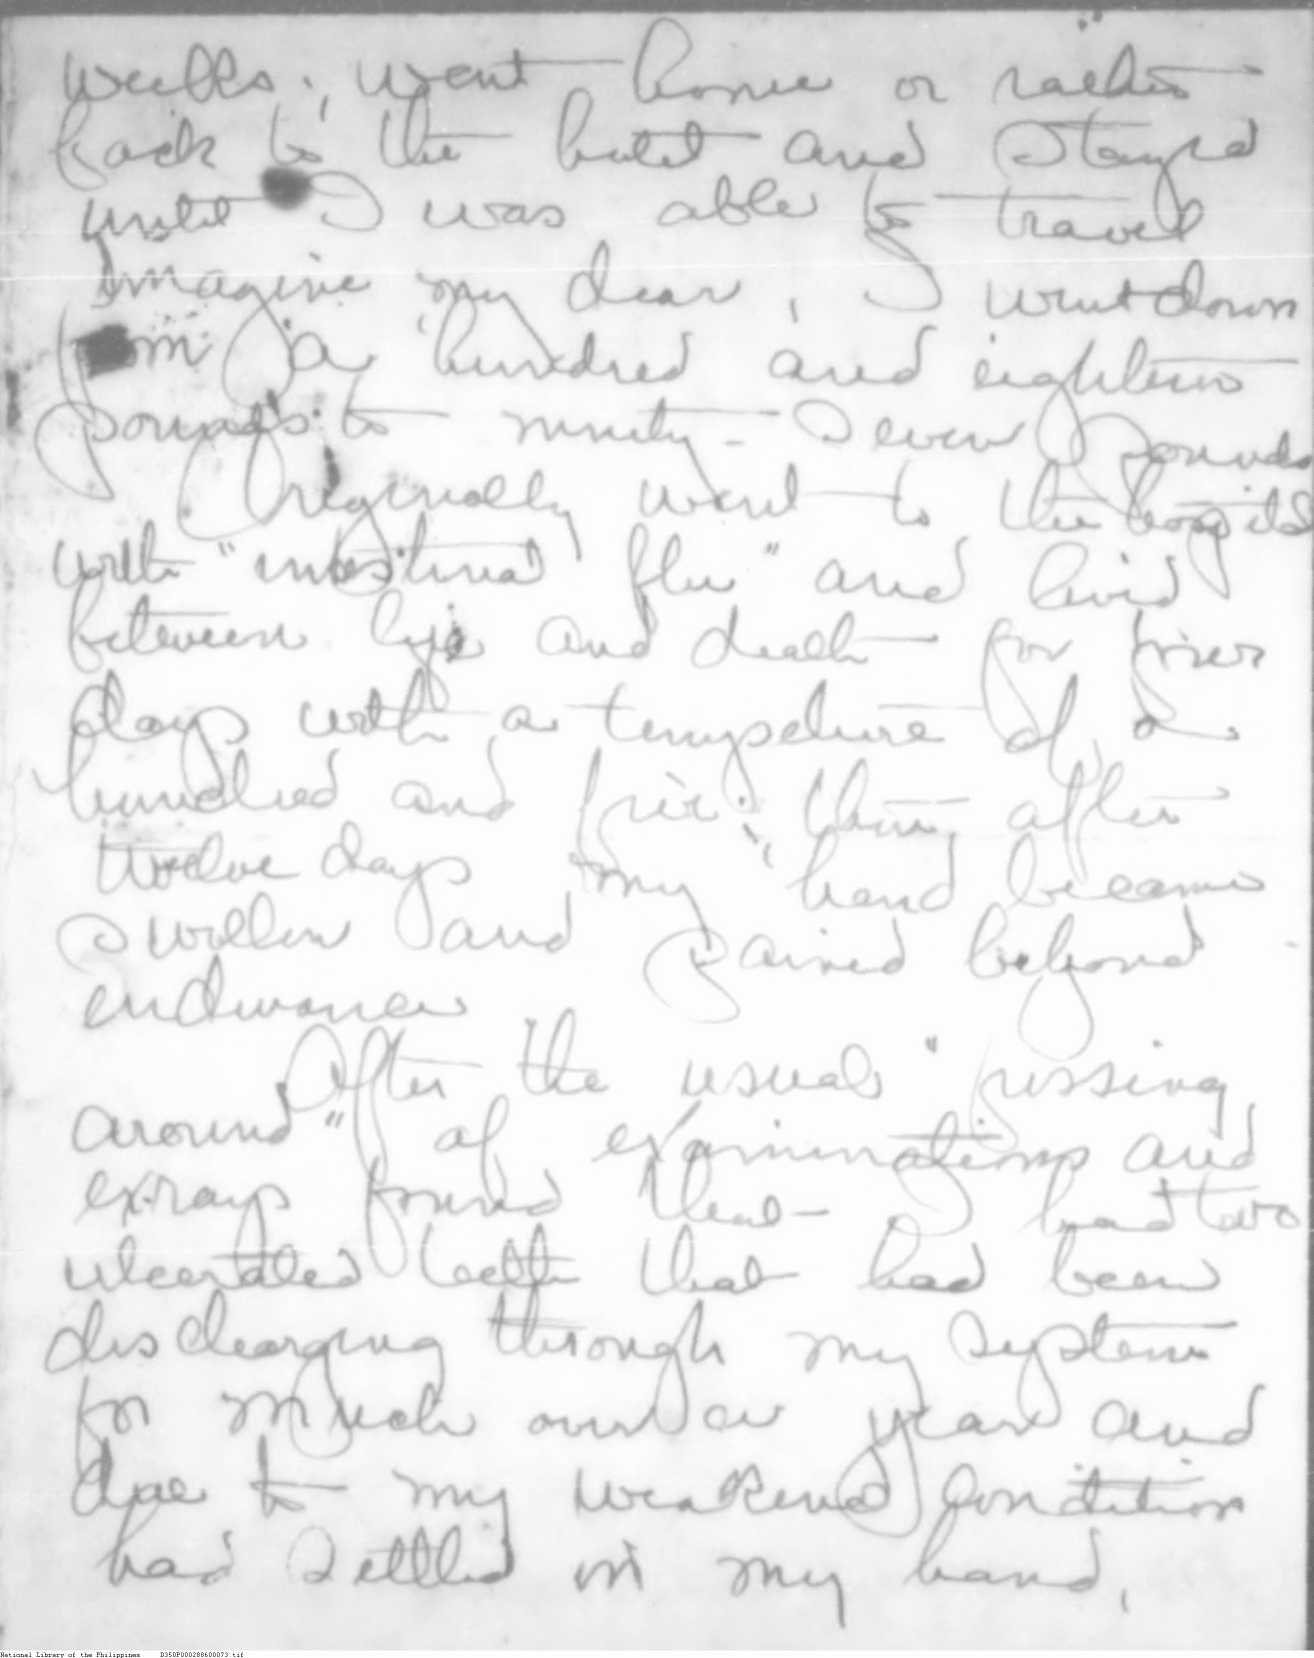 weeks; went home or rather
back to the hotel and stayed
until I was able to travel
Imagine my dear, I went down
from a hundred and eighteen
pounds to ninety-seven pounds
Originally went to the hospital
with "intestinal flu" and lived
between life and death for nine
days with a temperature of a
hundred and five; then, after
twelve days my hand became
swollen and pained beyond
endurance
After the usual "pissing
around" of examinations and
exrays found that I had two
ulcerated teeth that had been
discharging through my system
for much over a year and
due to my weakened condition
had settled in my hand,
National Library of the Philippines D350P000288600073.tif